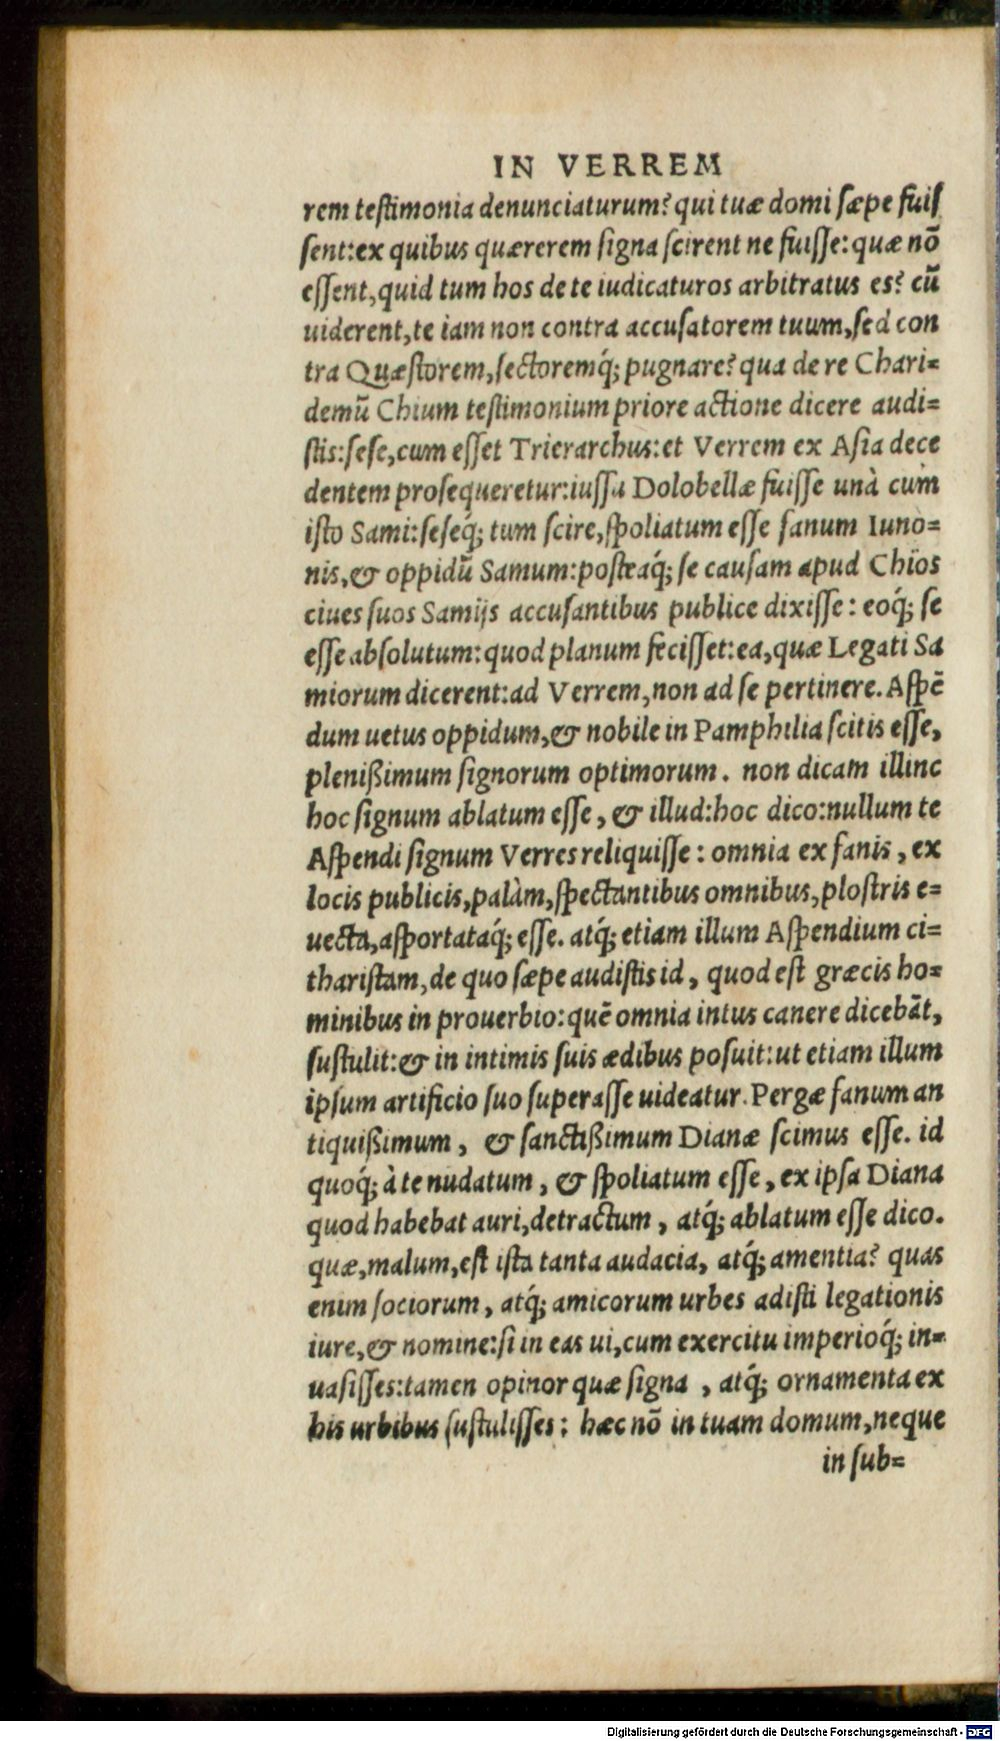 IN VERREM
rem teſtimonia denunciaturum? qui tuæ domi ſæpe fuiſ
ſent:ex quibus quærerem ſigna ſcirent ne fuiſſe: quæ nō
eſſent, quid tum hos de te iudicaturos arbitratus es? cū
uiderent, te iam non contra accuſatorem tuum, ſed con
tra Quæſtorem, ſectoremq́; pugnare? qua de re Chari=
demū Chium teſtimonium priore actione dicere audi=
ſtis: ſeſe, cum eſſet Trierarchus: et Verrem ex Aſia dece
dentem proſequeretur: iuſſu Dolobellæ fuiſſe unà cum
iſto Sami: ſeſeq́; tum ſcire, ſpoliatum eſſe fanum Iuno=
nis, & oppidū Samum: poſteaq́; ſe cauſam apud Chios
ciues ſuos Samijs accuſantibus publice dixiſſe: eoq́; ſe
eſſe abſolutum: quod planum feciſſet: ea, quæ Legati Sa
miorum dicerent: ad Verrem, non ad ſe pertinere. Aſpē
dum uetus oppidum, & nobile in Pamphilia ſcitis eſſe,
pleniſſimum ſignorum optimorum. non dicam illinc
hoc ſignum ablatum eſſe, & illud: hoc dico: nullum te
Aſpendi ſignum Verres reliquiſſe: omnia ex fanis, ex
locis publicis, palàm, ſpectantibus omnibus, ploſtris e=
uecta, aſportataq́; eſſe. atq́; etiam illum Aſpendium ci=
thariſtam, de quo ſæpe audiſtis id, quod eſt græcis ho=
minibus in prouerbio: quē omnia intus canere dicebāt,
ſuſtulit: & in intimis ſuis ædibus poſuit: ut etiam illum
ipſum artificio ſuo ſuperaſſe uideatur. Pergæ fanum an
tiquißimum, & ſanctißimum Dianæ ſcimus eſſe. id
quoq́; à te nudatum, & ſpoliatum eſſe, ex ipſa Diana
quod habebat auri, detractum, atq́; ablatum eſſe dico.
quæ, malum, eſt iſta tanta audacia, atq́; amentia? quas
enim ſociorum, atq́; amicorum urbes adiſti legationis
iure, & nomine: ſi in eas ui, cum exercitu imperioq́; in=
uaſiſſes: tamen opinor quæ ſigna, atq́; ornamenta ex
his urbibus ſuſtuliſſes: hæc nō in tuam domum, neque
in ſub=
Digitalisierung gefördert durch die Deutsche Forschungsgemeinschaft - DFG